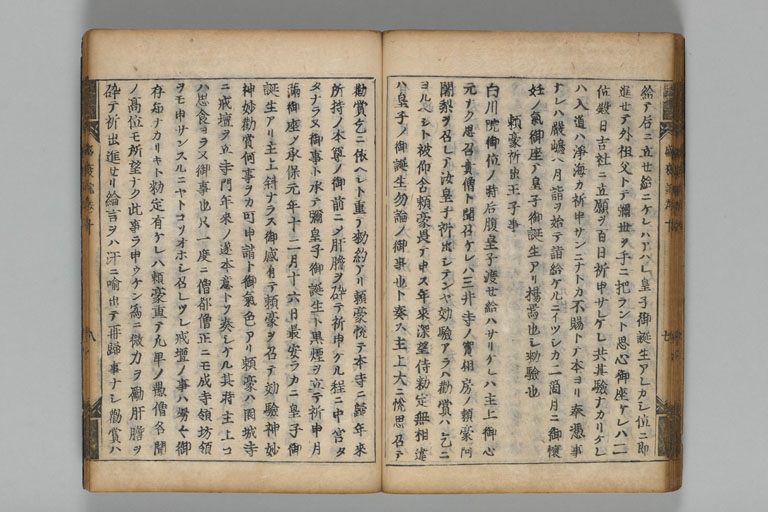 給テ后ニ立セ給ニケレハアハレ皇子御誕生アレカシ位ニ即
進セテ外祖父トテ彌世ヲ手ニ把ラント思心御座ケレハ二
位殿日吉社ニ立願ヲ百日祈申サレケレ共其驗ナカリケレ
ハ入道ハ淨海カ祈申サンニナトカ不賜トテ本ヨリ奉憑事
ナレハ嚴嶋ヘ月詣ヲ始テ詣給ケルニイツシカ二箇月ニ御懷
妊ノ氣御座テ皇子御誕生アリ揚焉也シ効驗也
頼豪祈出王子事
白川院御位ノ時后腹皇子渡セ給ハサリケレハ主上御心
元ナク思召貴僧ト聞召ケレハ三井寺ノ實相房ノ頼豪阿
闍梨ヲ召シテ汝皇子祈出シテンヤ効驗アラハ勸賞ハ乞ニ
ヨルヘシト被仰含頼豪畏テ申ス年來深望侍勅定無相違
ハ皇子ノ御誕生勿論ノ御事也ト奏ス主上大ニ悦思召テ
勸賞乞ニ依ヘシト重テ勅約アリ頼豪悦テ本寺ニ歸年來
所持ノ本尊ノ御前ニテ肝膽ヲ碎テ祈申ケル程ニ中宮タ
タナラヌ御事ト承テ彌皇子御誕生ト黒煙ヲ立テ祈申月
滿御座ノ承保元年十二月十六日最安ラカニ皇子御
誕生アリ主上斜ナラス御感有テ頼豪ヲ召テ効驗神妙
神妙勸賞何事ヲカ可申請ト御氣色アリ頼豪ハ園城寺
ニ戒壇ヲ立寺門年來ノ遂本意トソ奏シケル其時主上コ
ハ思食ヨラヌ御事也只一度ニ僧都僧正ニモ成寺領坊領
ヲモ申サンスルニヤトコソオホシ召シツレ戒壇ノ事ハ努々御
存知ナカリキト勅定有ケレハ頼豪重テ凡卑ノ愚僧名聞
ノ高位モ所望ナク此事ヲ申ウケン爲ニ微力ヲ勵肝膽ヲ
碎テ祈出進セリ綸言ヲハ汗ニ喩出テ再歸事ナシ勸賞ハ